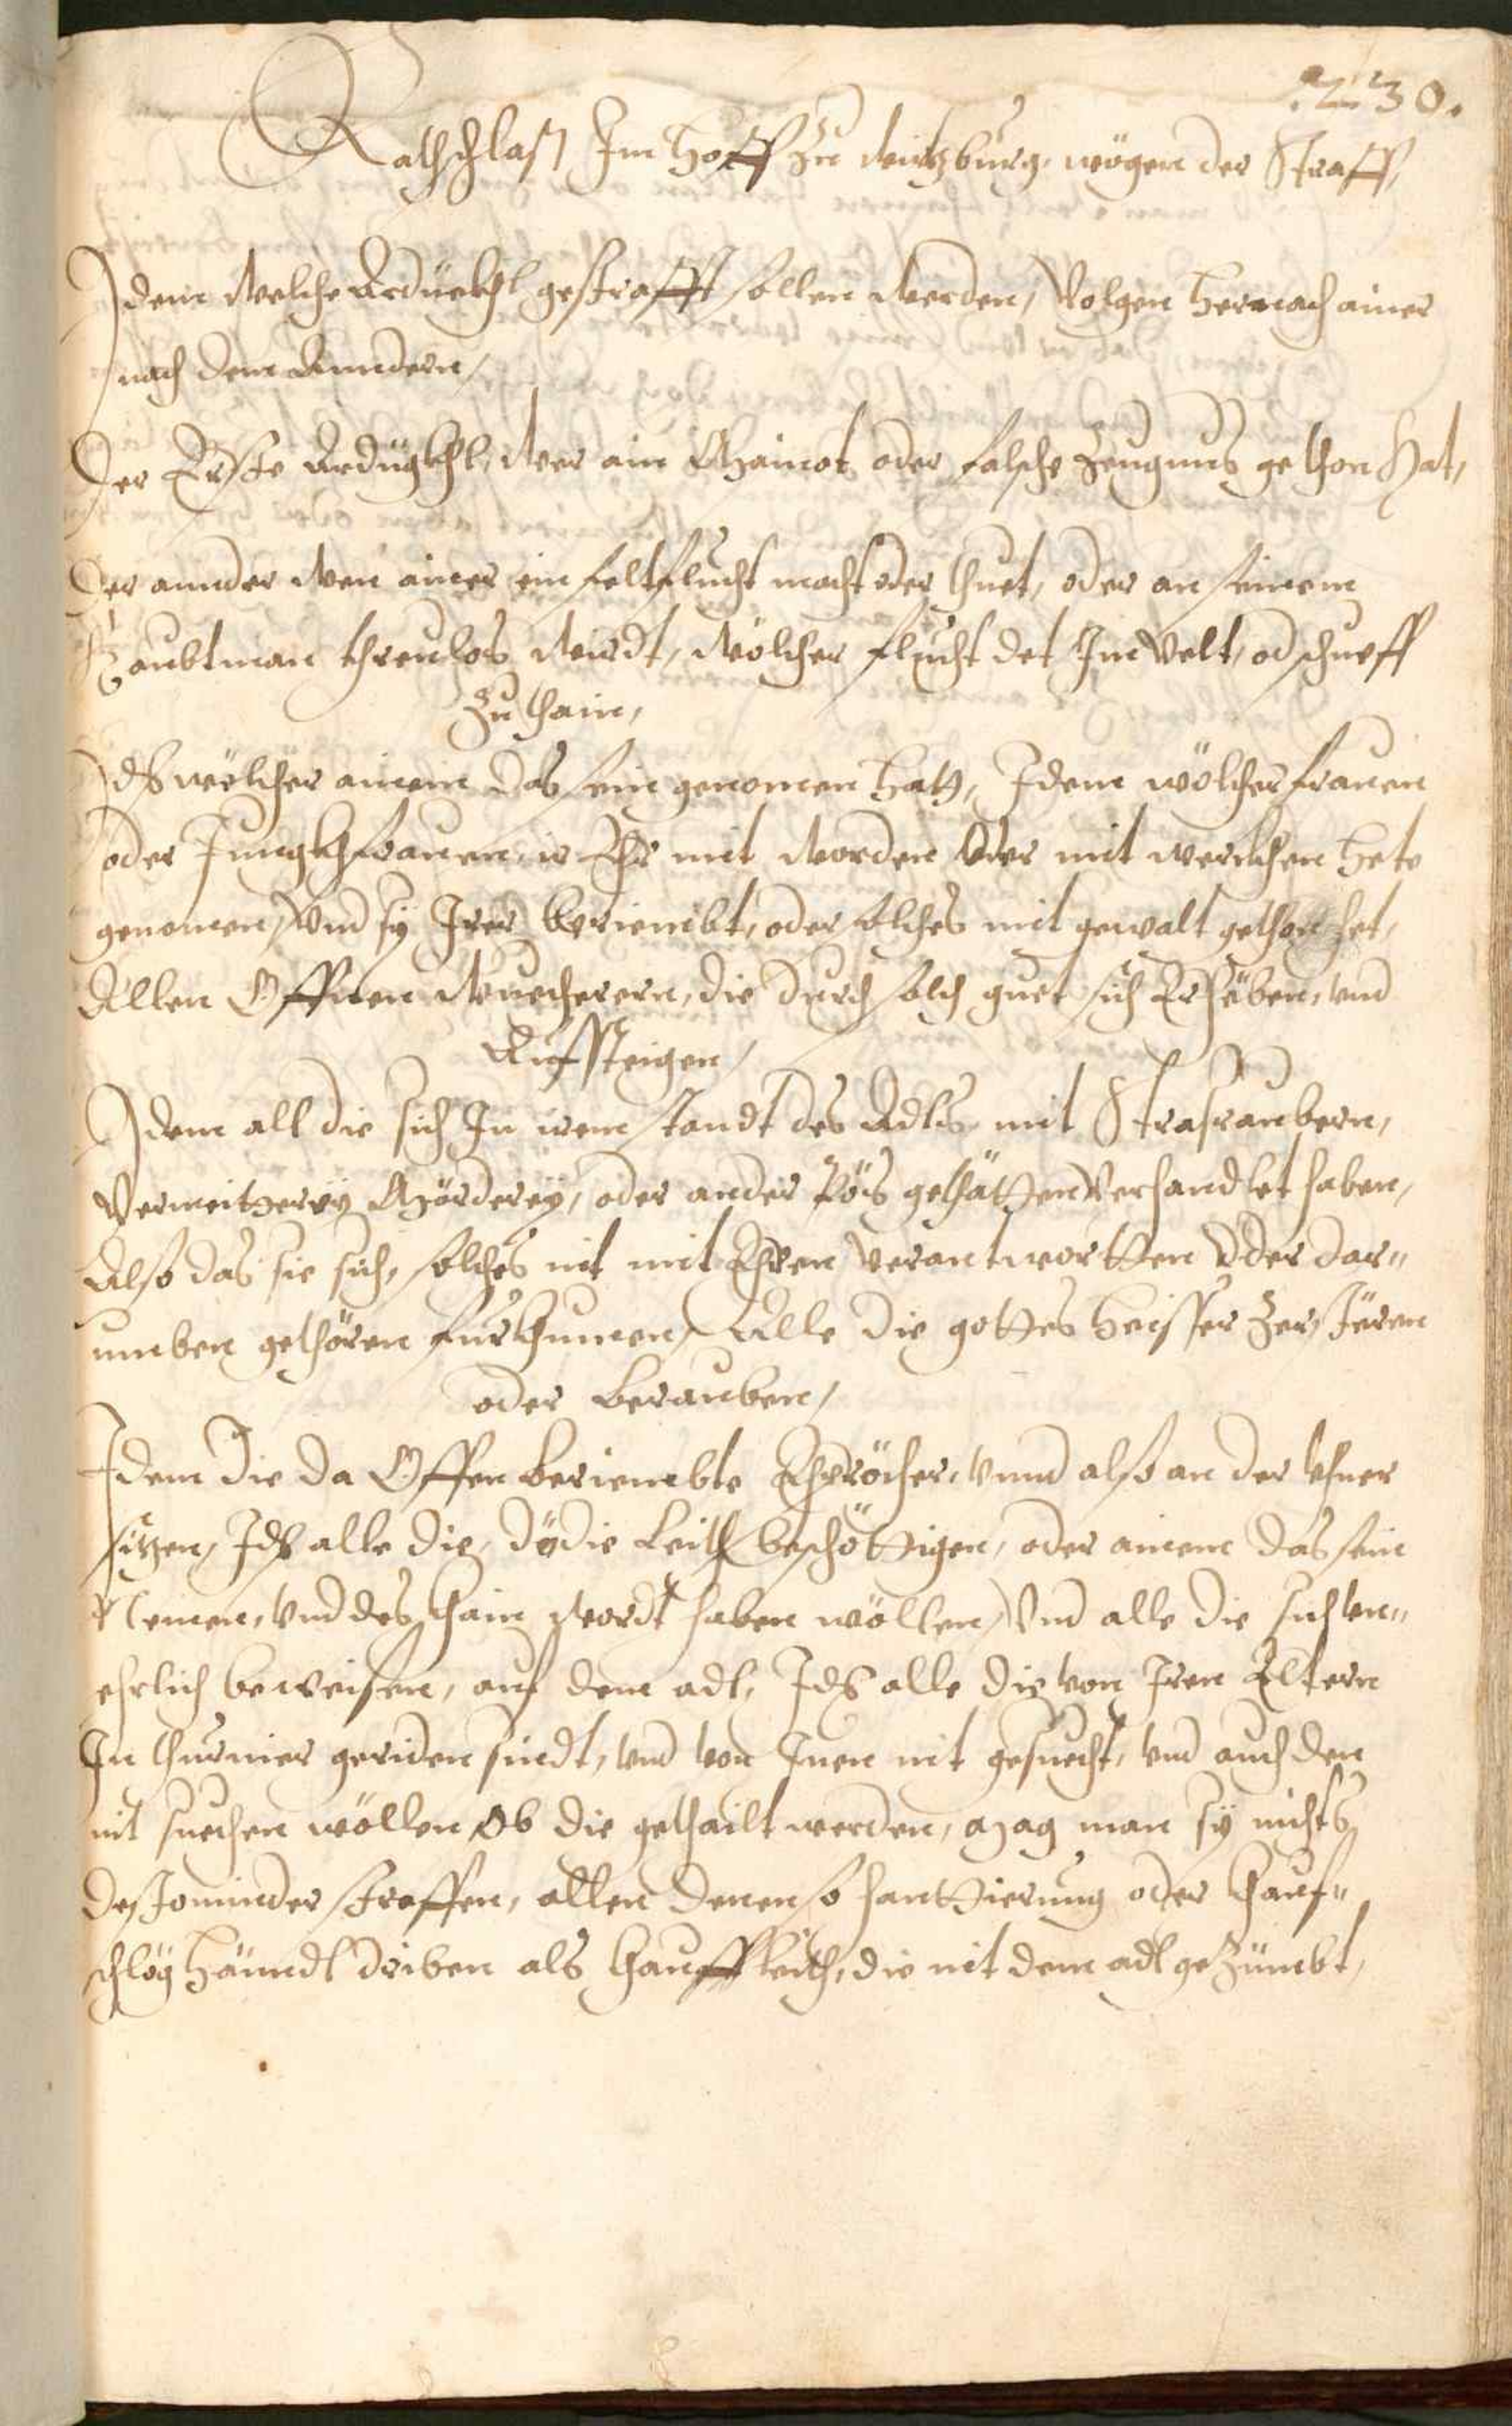 .230.
Rathschlag Im Hoff zu Wirtzburg, wögen der Straff,
Idem Welche Ardückhl gestrafft sollen Werden, Volgen hernach ainer
nach dem Anndern,
Der Erste Ardügkhl, Wer ain Mainot oder falsche Zeugnus gethon hat,
Der annder Wen ainer ein feltflucht macht oder thuet, oder an seinem
Haubtman threulos Wirdt, Wölcher flucht det Im Velt, od schueff
zu thain,
Ids wölcher ainem das sein genomen hatt, Idem wölcher frauen
oder Jungkhfrauen, ir Ehr mit Worden Oder mit werckhen hete
genomen, Vnd sy Irer beriembt, oder solches mit gewalt gethon het,
Allen Offnen Wuecherern, die durch solch guet sich Erhöben, vnd
Auffsteigen,
Idem all die sich In irem standt des Adls, mit Strasraubern,
Vermeitterey Mörderey, oder ander Pöß gethätten Verhandlet haben,
Also das sie sich, solches nit mit Ehren Verantwortten Oder dar"
umben gethören fürkhumen, Alle die gottes heisser Zerstören
oder Berauben,
Idem Die da Offen beriembte Ehpröcher, Vnnd also an der Uhner
sitzen, Ids alle die, dödie Leith beschöttigen, oder ainem das sein
Nemen, Vnd des khain Wordt haben wöllen, Vnd alle die sich vn"
ehrlich beweisen, auf dem adl, Ids alle die von Iren Eltern
In thurnier geriden sindt, vnd von Inen nit gesuecht, vnd auch den
nit suechen wöllen Ob die gethailt werden, mag man sy nichts
destominder straffen, allen denen so hanttierung oder khauf"
schlög händl driben als khauffleith, die nit dem adl geZümbt,